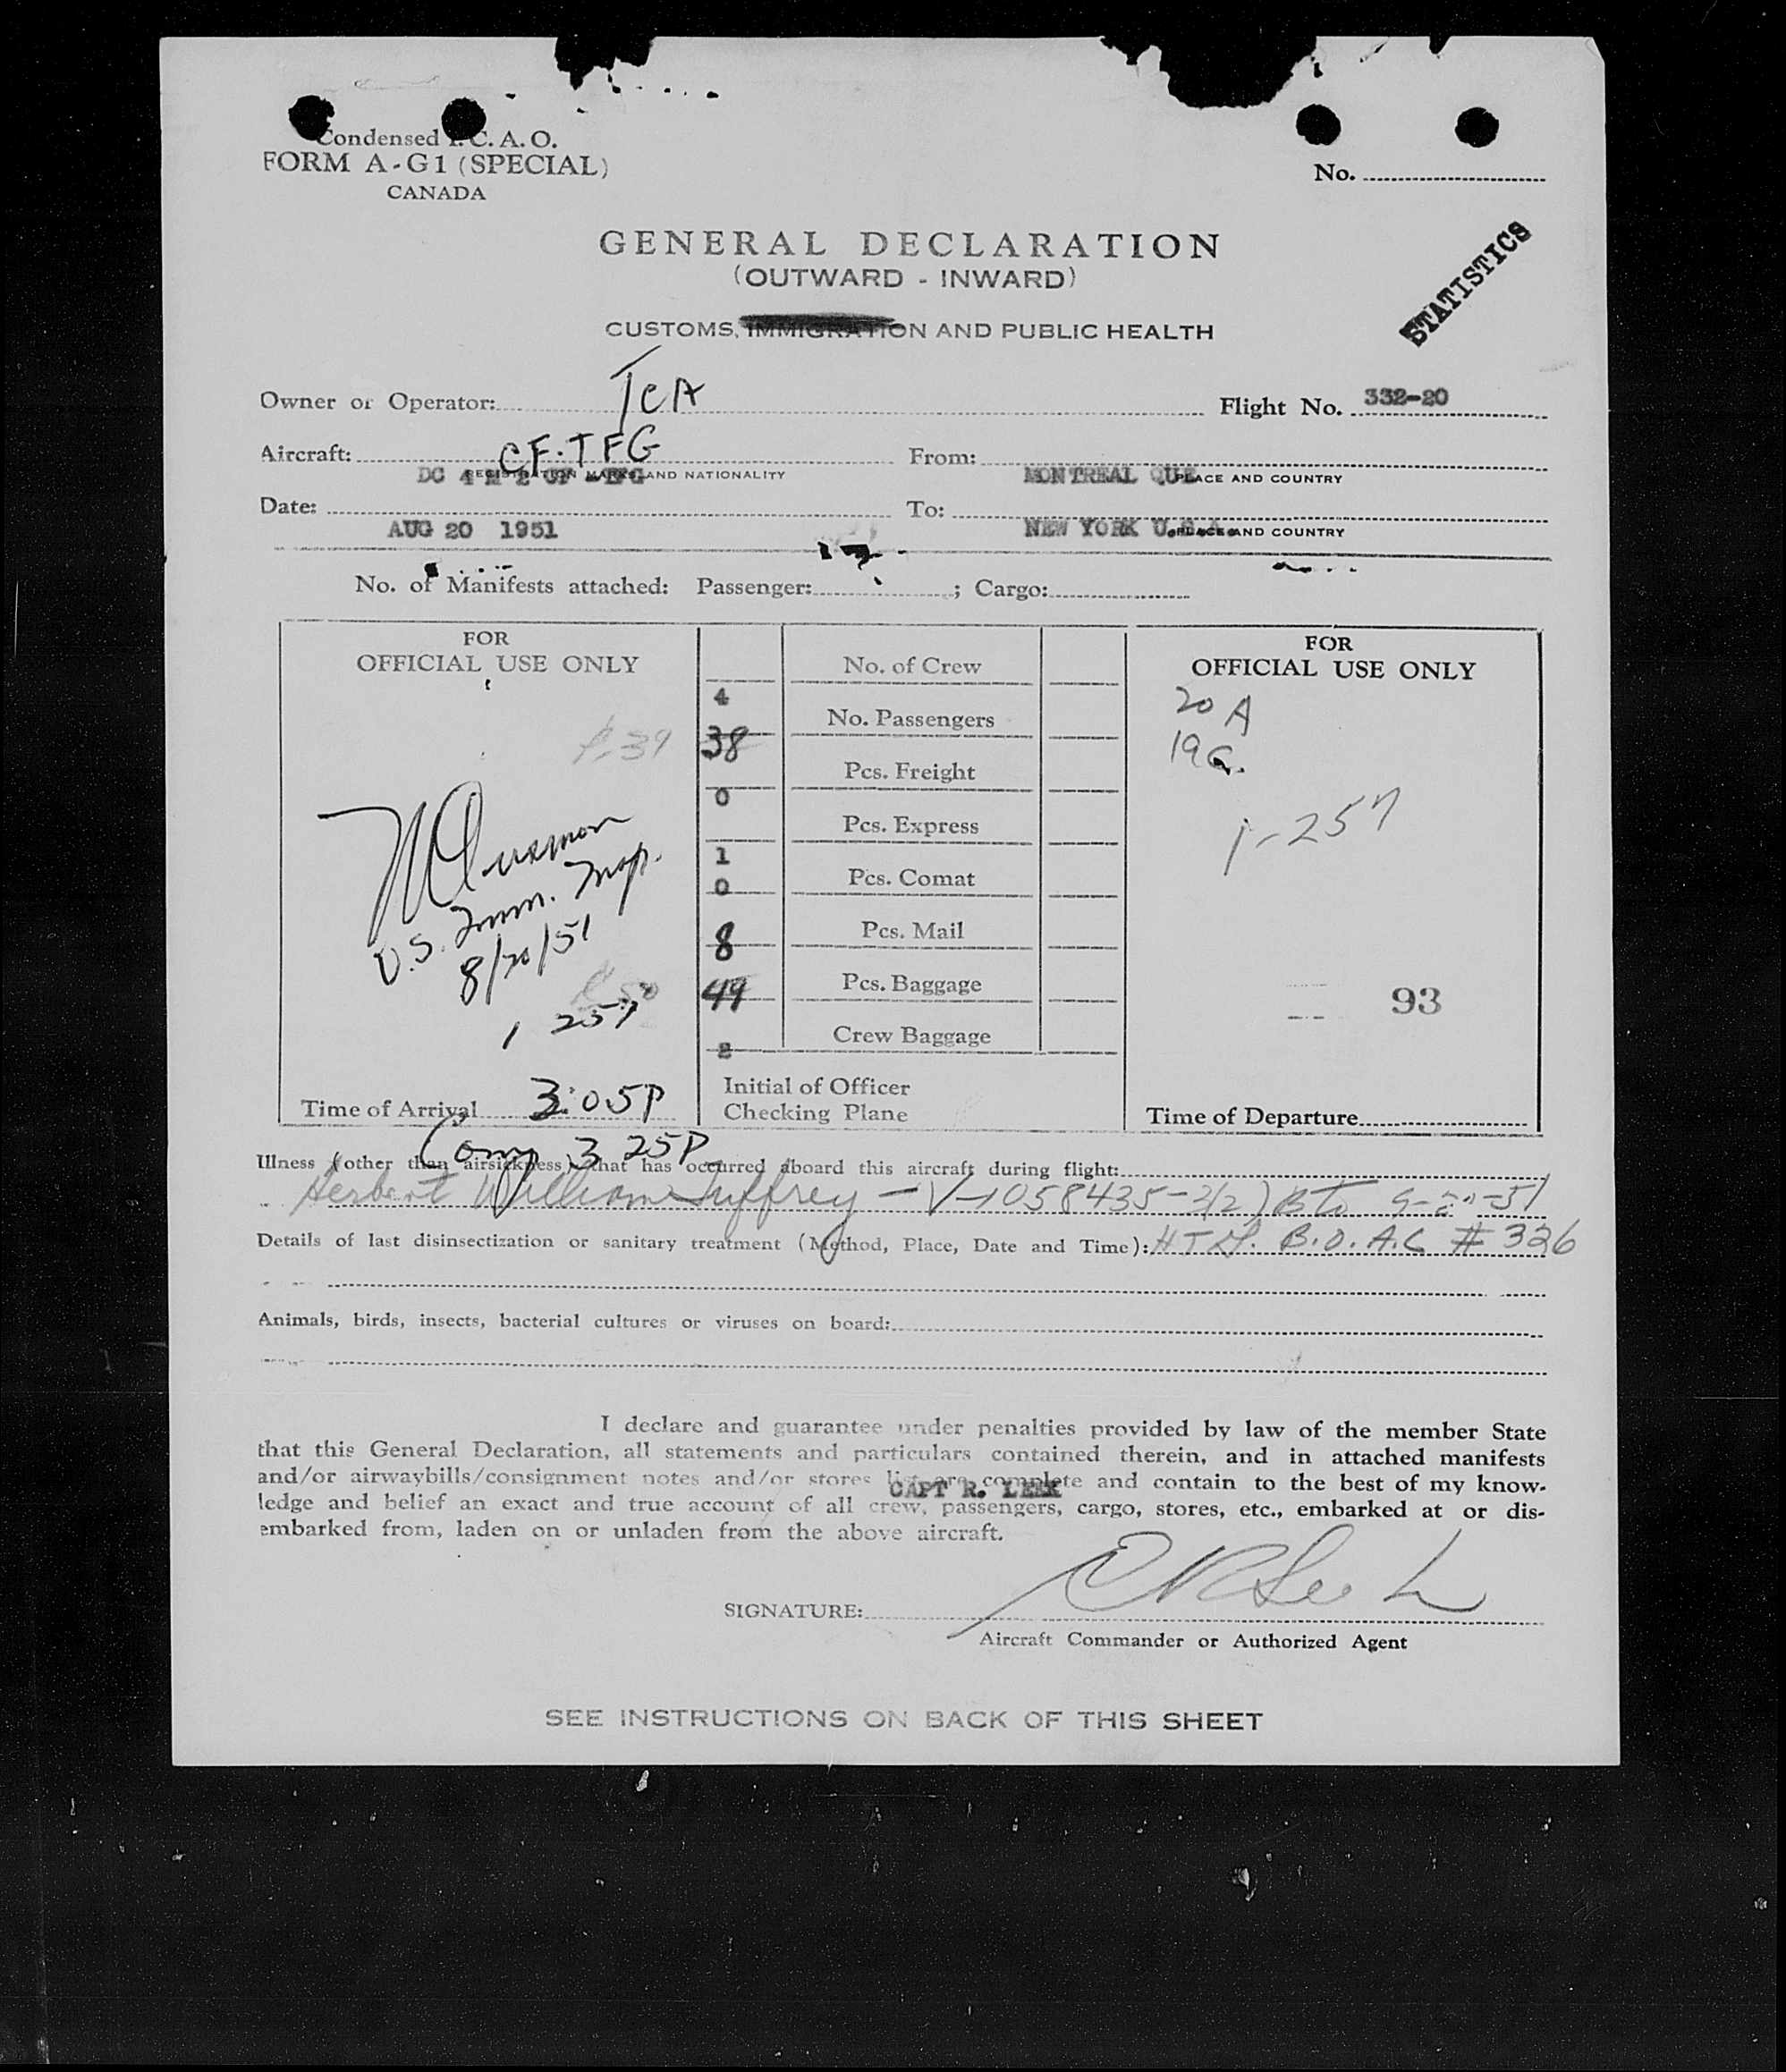 Condensed I. C. A. O.
FORM A-G1 (SPECIAL)
CANADA
No.
GENERAL DECLARATION
(OUTWARD - INWARD)
STATISTICS
CUSTOMS, IMMIGRATION AND PUBLIC HEALTH
Owner or Operator: TCA Flight No. 332-20
Aircraft: CF-TFG From:
DC 4 M 2 CF - TFG REGISTRATION MARKS AND NATIONALITY MONTREAL QUE PLACE AND COUNTRY
Date: To:
AUG 20 1951 NEW YORK U.S.A. PLACE AND COUNTRY
No. of Manifests attached: Passenger: ; Cargo:
FOR
OFFICIAL USE ONLY
No. of Crew
FOR
OFFICIAL USE ONLY
4
No. Passengers
20 A
39
38
19 C.
Pcs. Freight
0
Pcs. Express
1-257
1
Pcs. Comat
0
U.S. Imm. Insp.
8/20/51
Pcs. Mail
8
Pcs. Baggage
49
93
1 257
Crew Baggage
2
Time of Arrival 3:05P
Initial of Officer
Checking Plane
Time of Departure
Comp 3 25P
Illness (other than airsickness) that has occurred aboard this aircraft during flight:
Herbert William -V-1058435-
Details of last disinsectization or sanitary treatment (Method, Place, Date and Time): B.O.A.C # 326
Animals, birds, insects, bacterial cultures or viruses on board:
I declare and guarantee under penalties provided by law of the member State
that this General Declaration, all statements and particulars contained therein, and in attached manifests
and/or airwaybills/consignment notes and/or stores list are complete and contain to the best of my know-
CAPT R. LEEK
ledge and belief an exact and true account of all crew, passengers, cargo, stores, etc., embarked at or dis-
embarked from, laden on or unladen from the above aircraft.
SIGNATURE:
Aircraft Commander or Authorized Agent
SEE INSTRUCTIONS ON BACK OF THIS SHEET